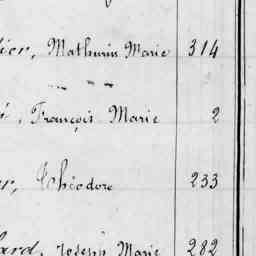 Mathurin Marie 314
François Marie 2
Théodore 233
Joseph Marie 282